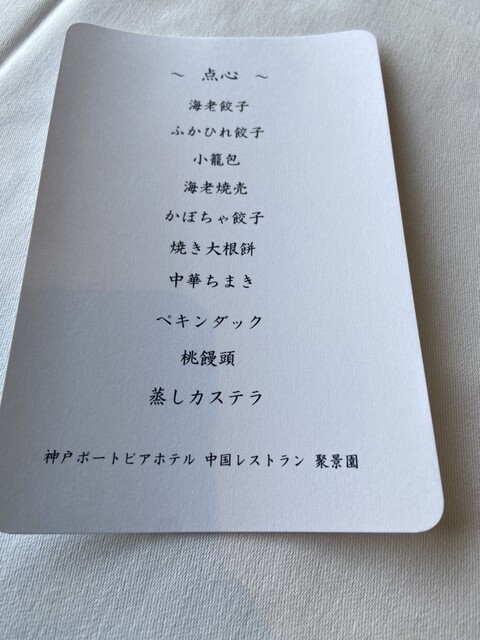 ～ 点心 ～
海老餃子
ふかひれ餃子
小籠包
海老焼売
かぼちゃ餃子
焼き大根餅
中華ちまき
ペキンダック
桃饅頭
蒸しカステラ
神戸ポートピアホテル 中国レストラン 聚景園